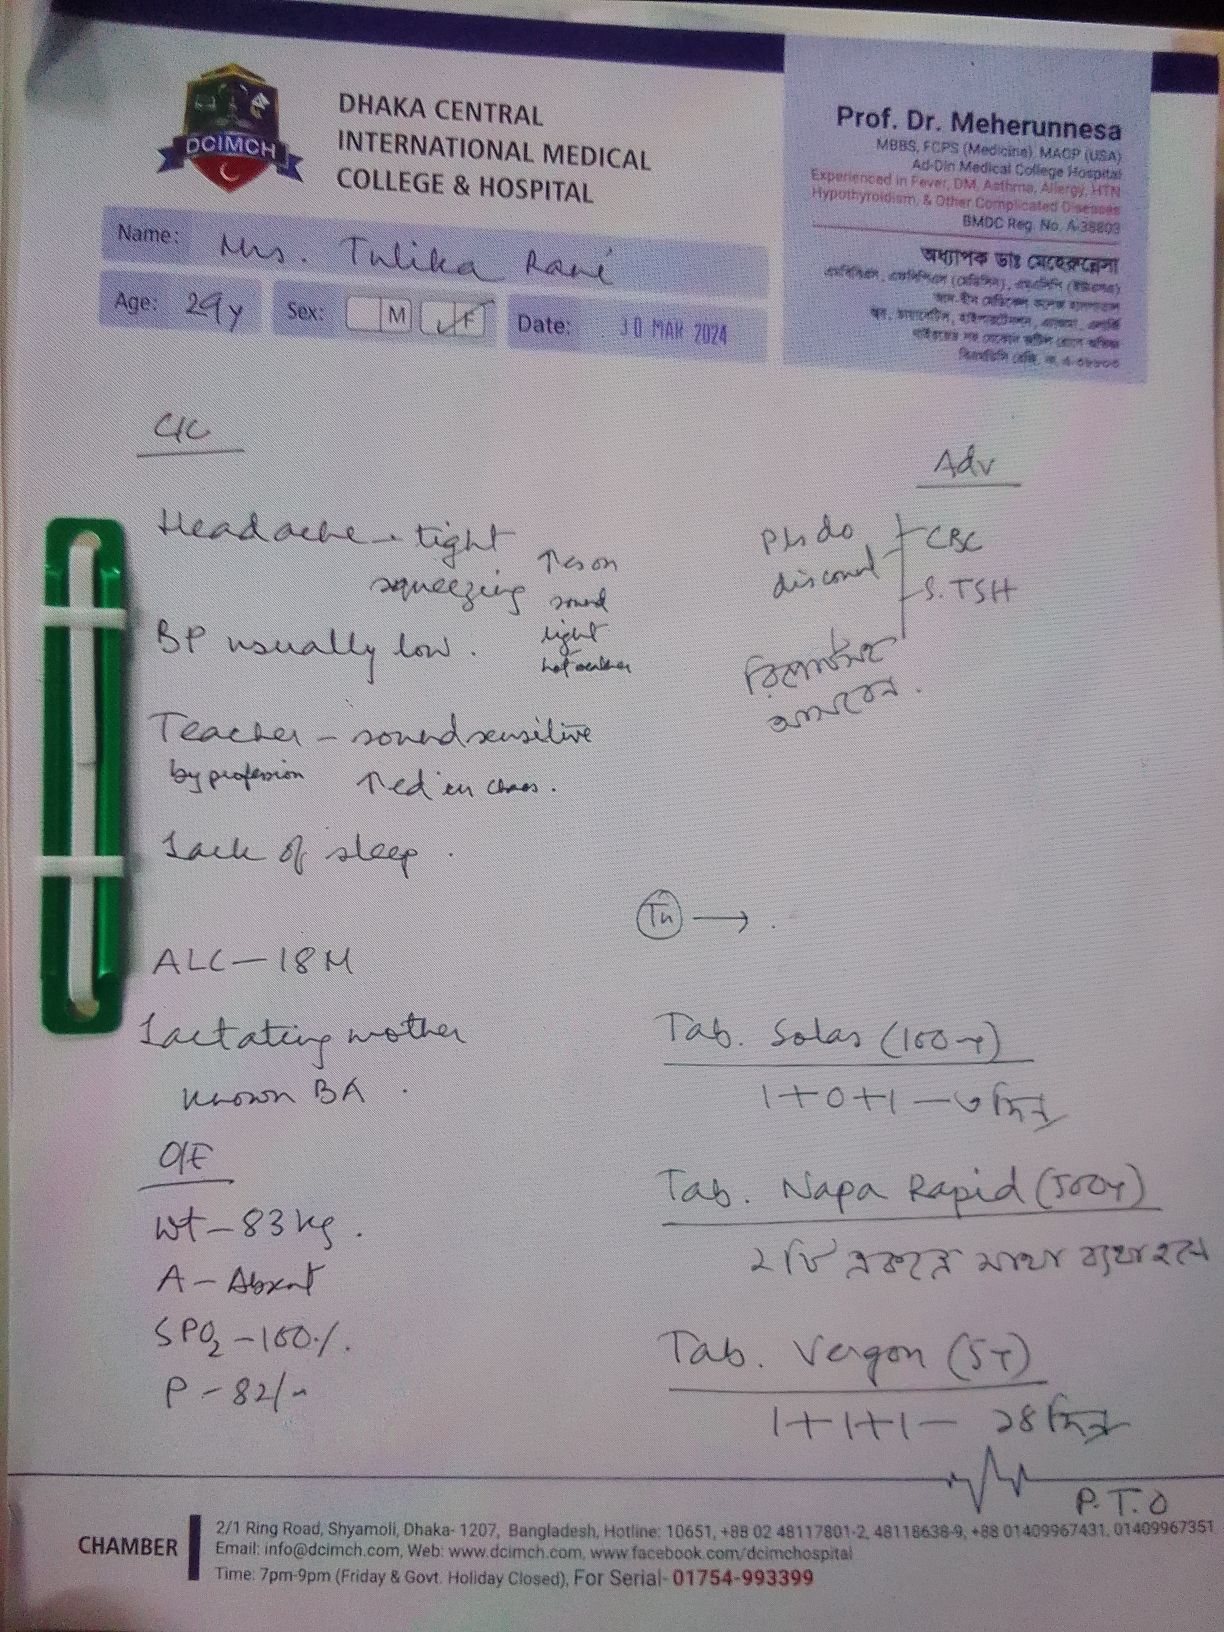 DCIMCH
DHAKA CENTRAL
INTERNATIONAL MEDICAL
COLLEGE & HOSPITAL
Prof. Dr. Meherunnesa
MBBS, FCPS (Medicine). MACP (USA)
Ad-Din Medical College Hospital
Experienced in Fever, DM, Asthma, Allergy, HTN
Hypothyroidism, & Other Complicated Diseases
BMDC Reg. No. A-38803
অধ্যাপক ডাঃ মেহেরুন্নেসা
Name: Mrs. Tulika Rani
Age: 29y Sex: M F Date: 30 MAR 2024
C/C
Headache - tight
squeezing
↑es on
sound
light
hot weather
BP usually low.
Teacher - sound sensitive
by profession ↑ed in chaos.
Lack of sleep.
ALC - 18M
Lactating mother
known BA.
O/E
Wt - 83 kg.
A - Absent
SPO2 - 100%.
P - 82/m
Adv
Pls do
discount
CBC
S. TSH
Tab. Solas (100)
1+0+1 - ৩ দিন
Tab. Napa Rapid (500)
২টি একত্রে মাথা ব্যথা হলে
Tab. Vergon (5)
1+1+1 - ১৪ দিন
P.T.O
CHAMBER
2/1 Ring Road, Shyamoli, Dhaka- 1207, Bangladesh, Hotline: 10651, +88 02 48117801-2, 48118638-9, +88 01409967431, 01409967351
Email: info@dcimch.com, Web: www.dcimch.com, www.facebook.com/dcimchospital
Time: 7pm-9pm (Friday & Govt. Holiday Closed), For Serial- 01754-993399